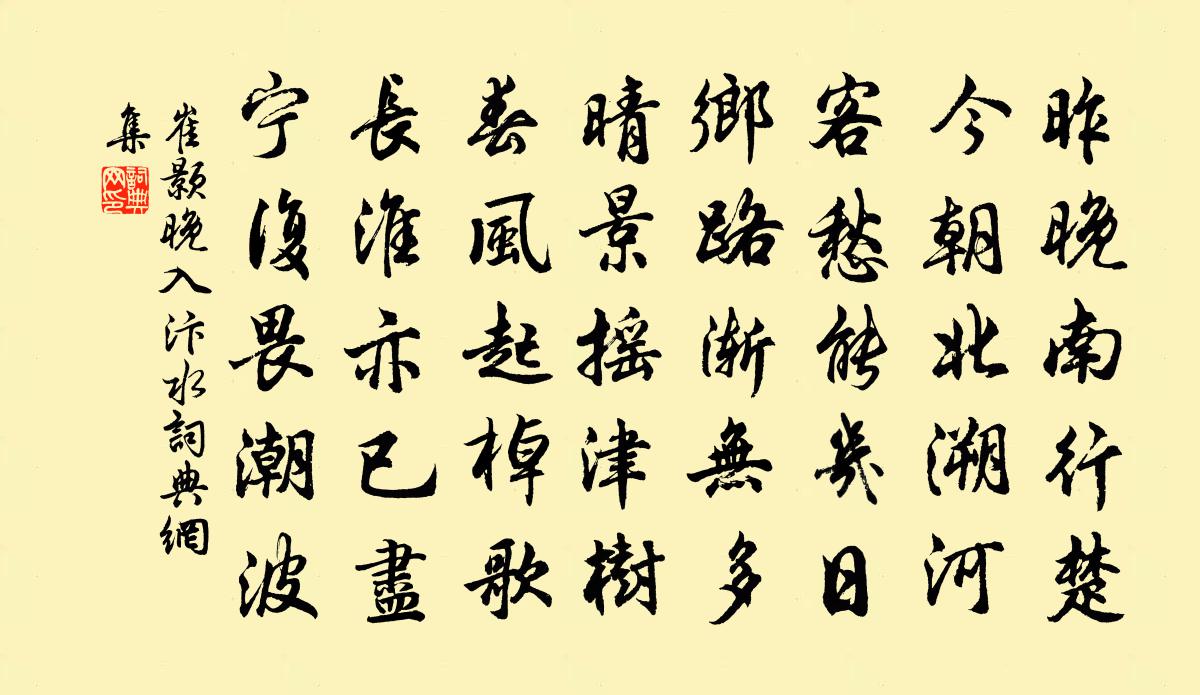 昨晚南行楚
今朝北溯河
客愁能幾日
鄉路漸無多
晴景搖津樹
春風起棹歌
長淮亦已盡
宁復畏潮波
崔顥晚入汴水詞典網
集
詞典
网印